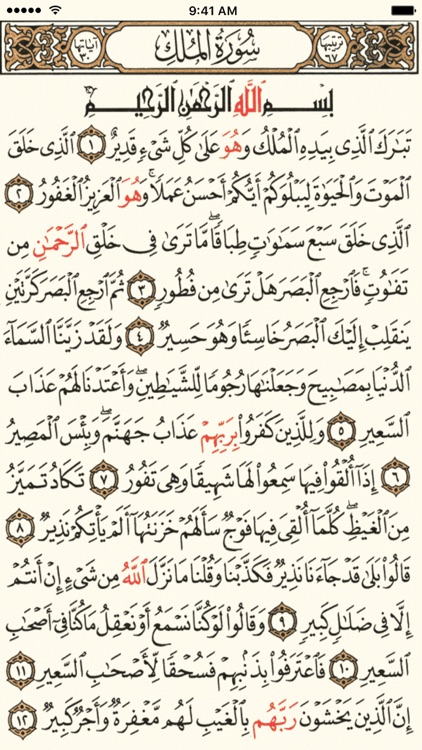 9:41 AM
ترتيبها ٦٧ سُورَةُ المُلْكِ آياتها ٣٠
بِسْمِ ٱللَّهِ ٱلرَّحْمَٰنِ ٱلرَّحِيمِ
تَبَٰرَكَ ٱلَّذِى بِيَدِهِ ٱلْمُلْكُ وَهُوَ عَلَىٰ كُلِّ شَىْءٍ قَدِيرٌ ١ ٱلَّذِى خَلَقَ
ٱلْمَوْتَ وَٱلْحَيَوٰةَ لِيَبْلُوَكُمْ أَيُّكُمْ أَحْسَنُ عَمَلًا ۚ وَهُوَ ٱلْعَزِيزُ ٱلْغَفُورُ ٢
ٱلَّذِى خَلَقَ سَبْعَ سَمَٰوَٰتٍ طِبَاقًا ۖ مَّا تَرَىٰ فِى خَلْقِ ٱلرَّحْمَٰنِ مِن
تَفَٰوُتٍ ۖ فَٱرْجِعِ ٱلْبَصَرَ هَلْ تَرَىٰ مِن فُطُورٍ ٣ ثُمَّ ٱرْجِعِ ٱلْبَصَرَ كَرَّتَيْنِ
يَنقَلِبْ إِلَيْكَ ٱلْبَصَرُ خَاسِئًا وَهُوَ حَسِيرٌ ٤ وَلَقَدْ زَيَّنَّا ٱلسَّمَآءَ
ٱلدُّنْيَا بِمَصَٰبِيحَ وَجَعَلْنَٰهَا رُجُومًا لِّلشَّيَٰطِينِ ۖ وَأَعْتَدْنَا لَهُمْ عَذَابَ
ٱلسَّعِيرِ ٥ وَلِلَّذِينَ كَفَرُوا۟ بِرَبِّهِمْ عَذَابُ جَهَنَّمَ ۖ وَبِئْسَ ٱلْمَصِيرُ
٦ إِذَآ أُلْقُوا۟ فِيهَا سَمِعُوا۟ لَهَا شَهِيقًا وَهِىَ تَفُورُ ٧ تَكَادُ تَمَيَّزُ
مِنَ ٱلْغَيْظِ ۖ كُلَّمَآ أُلْقِىَ فِيهَا فَوْجٌ سَأَلَهُمْ خَزَنَتُهَآ أَلَمْ يَأْتِكُمْ نَذِيرٌ ٨
قَالُوا۟ بَلَىٰ قَدْ جَآءَنَا نَذِيرٌ فَكَذَّبْنَا وَقُلْنَا مَا نَزَّلَ ٱللَّهُ مِن شَىْءٍ إِنْ أَنتُمْ
إِلَّا فِى ضَلَٰلٍ كَبِيرٍ ٩ وَقَالُوا۟ لَوْ كُنَّا نَسْمَعُ أَوْ نَعْقِلُ مَا كُنَّا فِىٓ أَصْحَٰبِ
ٱلسَّعِيرِ ١٠ فَٱعْتَرَفُوا۟ بِذَنۢبِهِمْ فَسُحْقًا لِّأَصْحَٰبِ ٱلسَّعِيرِ ١١
إِنَّ ٱلَّذِينَ يَخْشَوْنَ رَبَّهُم بِٱلْغَيْبِ لَهُم مَّغْفِرَةٌ وَأَجْرٌ كَبِيرٌ ١٢